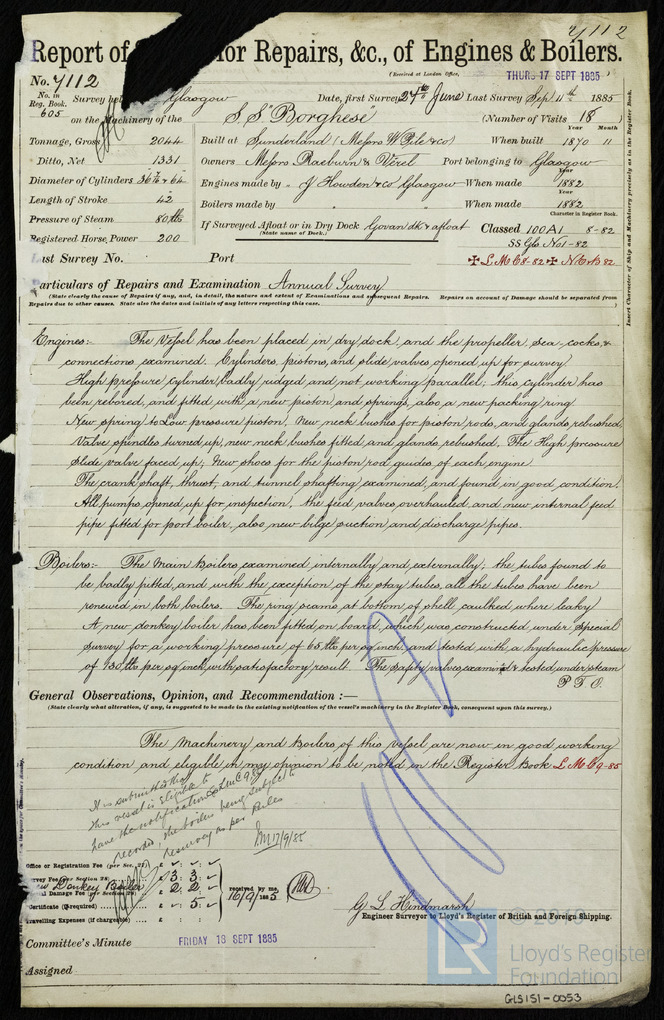 7112
Report of for Repairs, &c., of Engines & Boilers.
No. 7112
(Received at London Office,
THURS 17 SEPT 1885
No. in Reg. Book. 605 Survey held Glasgow Date, first Survey 24th June Last Survey Sep 11th 1885
on the Machinery of the S.S "Borghese" (Number of Visits 18
Year Month
Tonnage, Gross 2044 Built at Sunderland (Messrs W Pile & co) When built 1870 11
Ditto, Net 1331 Owners Messrs Raeburn & Verel Port belonging to Glasgow
Year
Diameter of Cylinders 36 7/8 & 64 Engines made by J Howden & co Glasgow When made 1882
Year
Length of Stroke 42 Boilers made by When made 1882
Character in Register Book.
Pressure of Steam 80 lbs If Surveyed Afloat or in Dry Dock Govan dk & afloat Classed 100A1 8-82
(State name of Dock.)
SS Gls No1-82
Registered Horse Power 200
Last Survey No. Port ✠ L.M.C 8-82 ✠ N.E & B 82
Insert Character of Ship and Machinery precisely as in the Register Book.
articulars of Repairs and Examination Annual Survey
(State clearly the cause of Repairs if any, and, in detail, the nature and extent of Examinations and subsequent Repairs. Repairs on account of Damage should be separated from
Repairs due to other causes. State also the dates and initials of any letters respecting this case.
Engines:- The Vessel has been placed in dry dock, and the propeller, sea-cocks, &
connections, examined. Cylinders, pistons, and slide valves, opened up for survey
High pressure cylinder badly ridged and not working parallel; this cylinder has
been rebored, and fitted with a new piston and springs, also a new packing ring
New spring to Low pressure piston. New neck bushes for piston rods, and glands rebushed
Valve spindles turned up, new neck bushes fitted and glands rebushed. The High pressure
slide valve faced up; New shoes for the piston rod guides of each engine.
The crank shaft, thrust, and tunnel shafting examined, and found in good condition.
All pumps opened up for inspection, the feed valves overhauled, and new internal feed
pipe fitted for port boiler, also new bilge suction and discharge pipes.
Boilers:- The Main Boilers examined internally and externally; the tubes found to
be badly pitted, and with the exception of the stay tubes, all the tubes have been
renewed in both boilers. The ring seams at bottom of shell caulked where leaky
A new donkey boiler has been fitted on board, which was constructed under Special
Survey for a working pressure of 65 lbs per sq inch, and tested with a hydraulic pressure
of 130 lbs per sq inch, with satisfactory result. The safety valves, examined & tested under steam
P.T.O.
General Observations, Opinion, and Recommendation :—
(State clearly what alteration, if any, is suggested to be made in the existing notification of the vessel's machinery in the Register Book, consequent upon this survey.)
The Machinery and Boilers of this Vessel are now in good working
condition and eligible in my opinion to be noted in the Register Book L.M.C 9-85
It is submitted that
this vessel is eligible to
have the notification L.M.C 9.85
recorded, the boilers being subject to
resurvey as per Rules
17/9/85
Office or Registration Fee (per Sec. 27)
Survey Fee (per Section 28) £ 3 : 3 :
New Donkey Boiler
Damage Fee (per Section 28) £ 2 : 2 :
received by me,
Certificate (if required) £ : 5 :
16/9/1885
Travelling Expenses (if chargeable) £
G L Hindmarsh
Engineer Surveyor to Lloyd's Register of British and Foreign Shipping.
Committee's Minute
FRIDAY 18 SEPT 1885
Assigned
LR
Lloyd's Register
Foundation
GLS151-0053